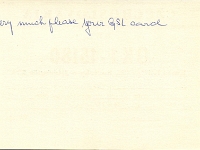 ery much please your QSL card